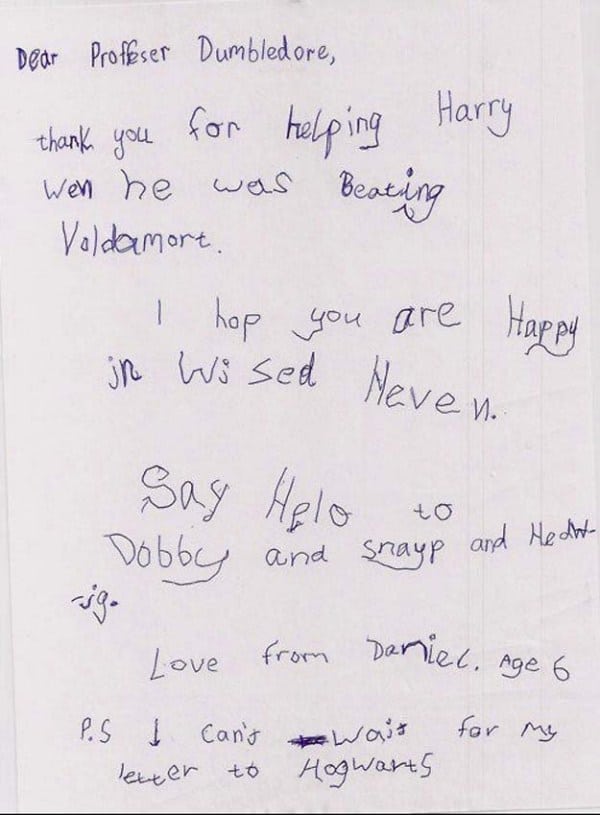 Dear Proffeser Dumbledore,
thank you for helping Harry
wen he was Beating
Voldamort.
I hop you are Happy
in Wised Heven.
Say Helo to
Dobby and snayp and Hedw-
-ig.
Love from Daniel. Age 6
P.S I Can't Wait for My
letter to Hogwarts